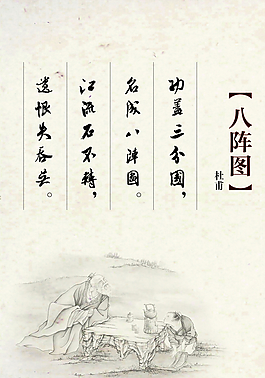 【八阵图】
杜甫
功盖三分国，
名成八阵图。
江流石不转，
遗恨失吞吴。